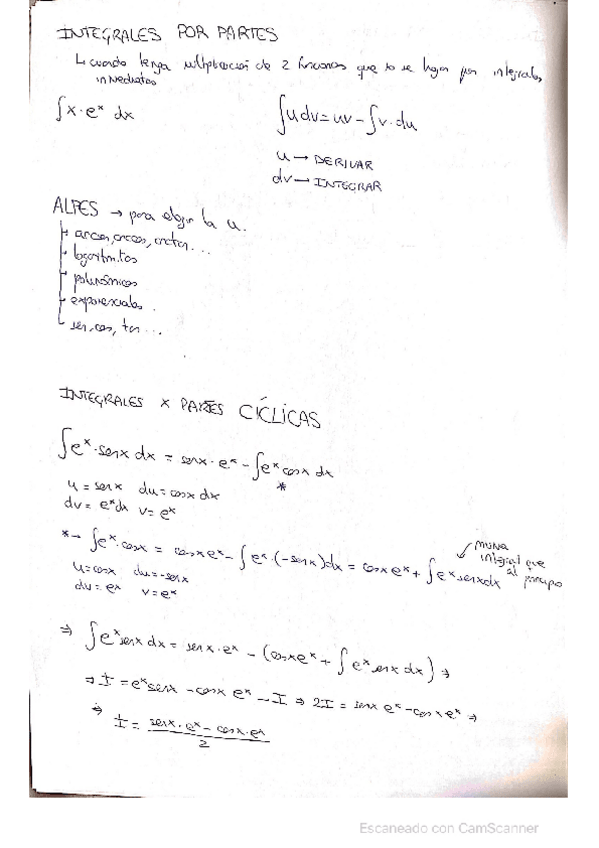 INTEGRALES POR PARTES
↳ cuando tenga multiplicación de 2 funciones que no se hagan por integrales
inmediatas
∫x·eˣ dx
∫u dv = uv - ∫v·du
u → DERIVAR
dv → INTEGRAR
ALPES → para elegir la u.
arcsen, arccos, arctan...
logaritmos
polinómicos
exponenciales.
sen, cos, tan...
INTEGRALES x PARTES CÍCLICAS
∫eˣ·senx dx = senx·eˣ - ∫eˣ cosx dx
*
u = senx du = cosx dx
dv = eˣdx v = eˣ
* → ∫eˣ·cosx = cosx eˣ - ∫eˣ·(-senx)dx = cosx eˣ + ∫eˣ senxdx
misma
integral que
al principio
u=cosx du=-senx
dv=eˣ v=eˣ
⇒ ∫eˣ senx dx = senx·eˣ - (cosxeˣ + ∫eˣ senx dx) ⇒
⇒ I = eˣ senx - cosx eˣ - I ⇒ 2I = senx eˣ - cosx eˣ ⇒
⇒ I = senx·eˣ - cosx·eˣ
2
Escaneado con CamScanner